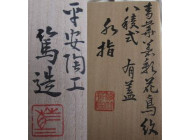 青華色彩花鳥紋
八稜式 有蓋
水指
平安陶工
篤造